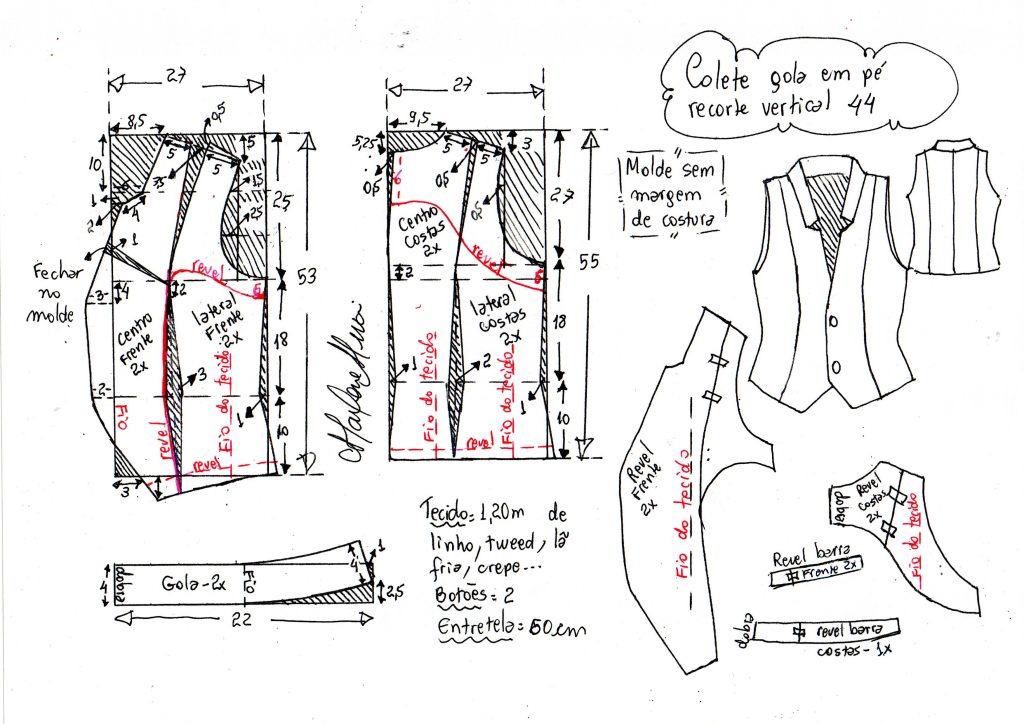 Colete gola em pé
recorte vertical 44
Molde sem
margem
de costura
27
8,5
0,5
10
5
5
5
7,5
1,5
2,5
1
2
4
1
25
53
Fechar
no
molde
3
4
2
revel
6
Centro
Frente
2x
lateral
Frente
2x
18
2
3
1
Fio
revel
Fio do tecido
revel
10
3
27
9,5
5,25
0,5
6
5
5
0,5
0,5
3
27
55
Centro
Costas
2x
revel
6
2
lateral
Costas
2x
18
1
2
Fio do tecido
Fio do tecido
revel
10
4
dobra
Gola-2x
Fio
4
1
2,5
22
Tecido=1,20m de
linho, tweed, lã
fria, crepe...
Botões=2
Entretela=50cm
Revel
Frente
2x
Fio do tecido
dobra
Revel
Costas
2x
Fio do tecido
Revel barra
Frente 2x
dobra
revel barra
costas-1x